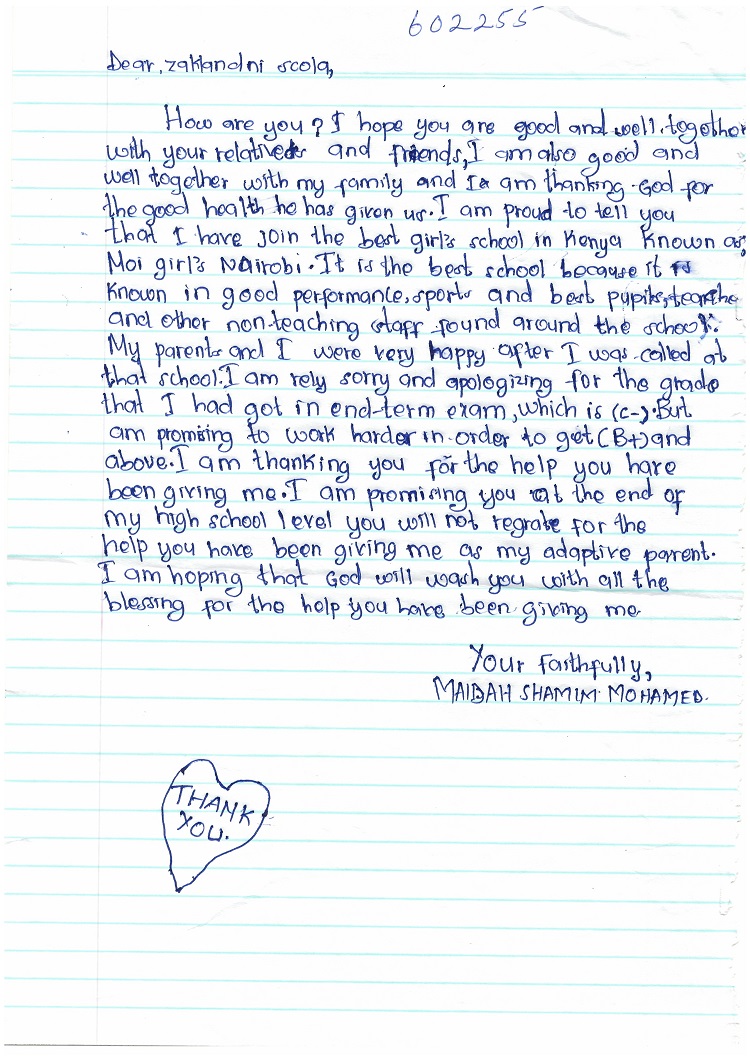 602255
Dear, zakladni scola,
How are you? I hope you are good and well. together
with your relatives and friends, I am also good and
well together with my family and I am thanking God for
the good health he has given us. I am proud to tell you
that I have join the best girl's school in Kenya known as,
Moi girl's Nairobi. It is the best school because it is
known in good performance, sports and best pupils, teache
and other non-teaching staff found around the school.
My parents and I were very happy after I was called at
that school. I am rely sorry and apologizing for the grade
that I had got in end-term exam, which is (c-). But
am promising to work harder in order to get (B+) and
above. I am thanking you for the help you have
been giving me. I am promising you at the end of
my high school level you will not regrate for the
help you have been giving me as my adaptive parent.
I am hoping that God will wash you with all the
blessing for the help you have been giving me
Your Faithfully,
MAIDAH SHAMIM MOHAMED.
THANK
YOU.